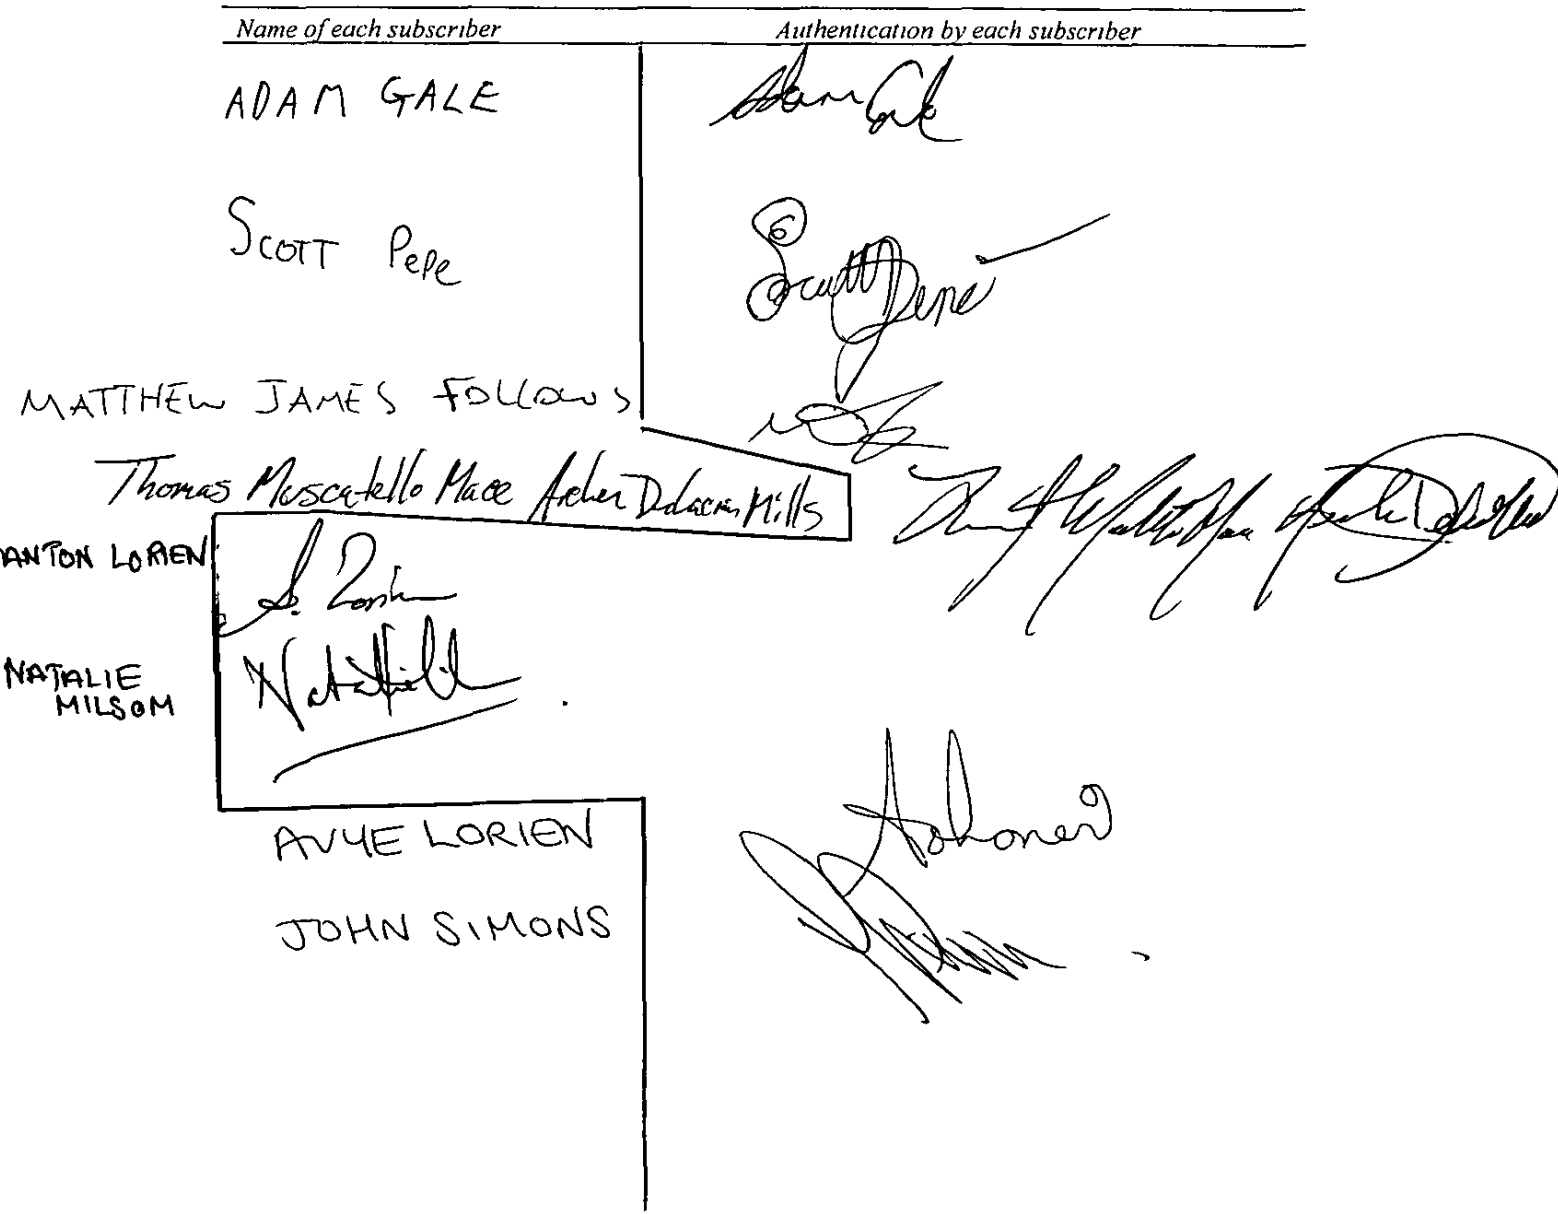 Name of each subscriber Authentication by each subscriber
ADAM GALE Adam Gale
SCOTT PePe Scott Pepe
MATTHEW JAMES FOLLOWS
Thomas Muscatello Mace Archer Delacres Mills
ANTON LORIEN A. Lorien
NATALIE
MILSOM
AVYE LORIEN
JOHN SIMONS